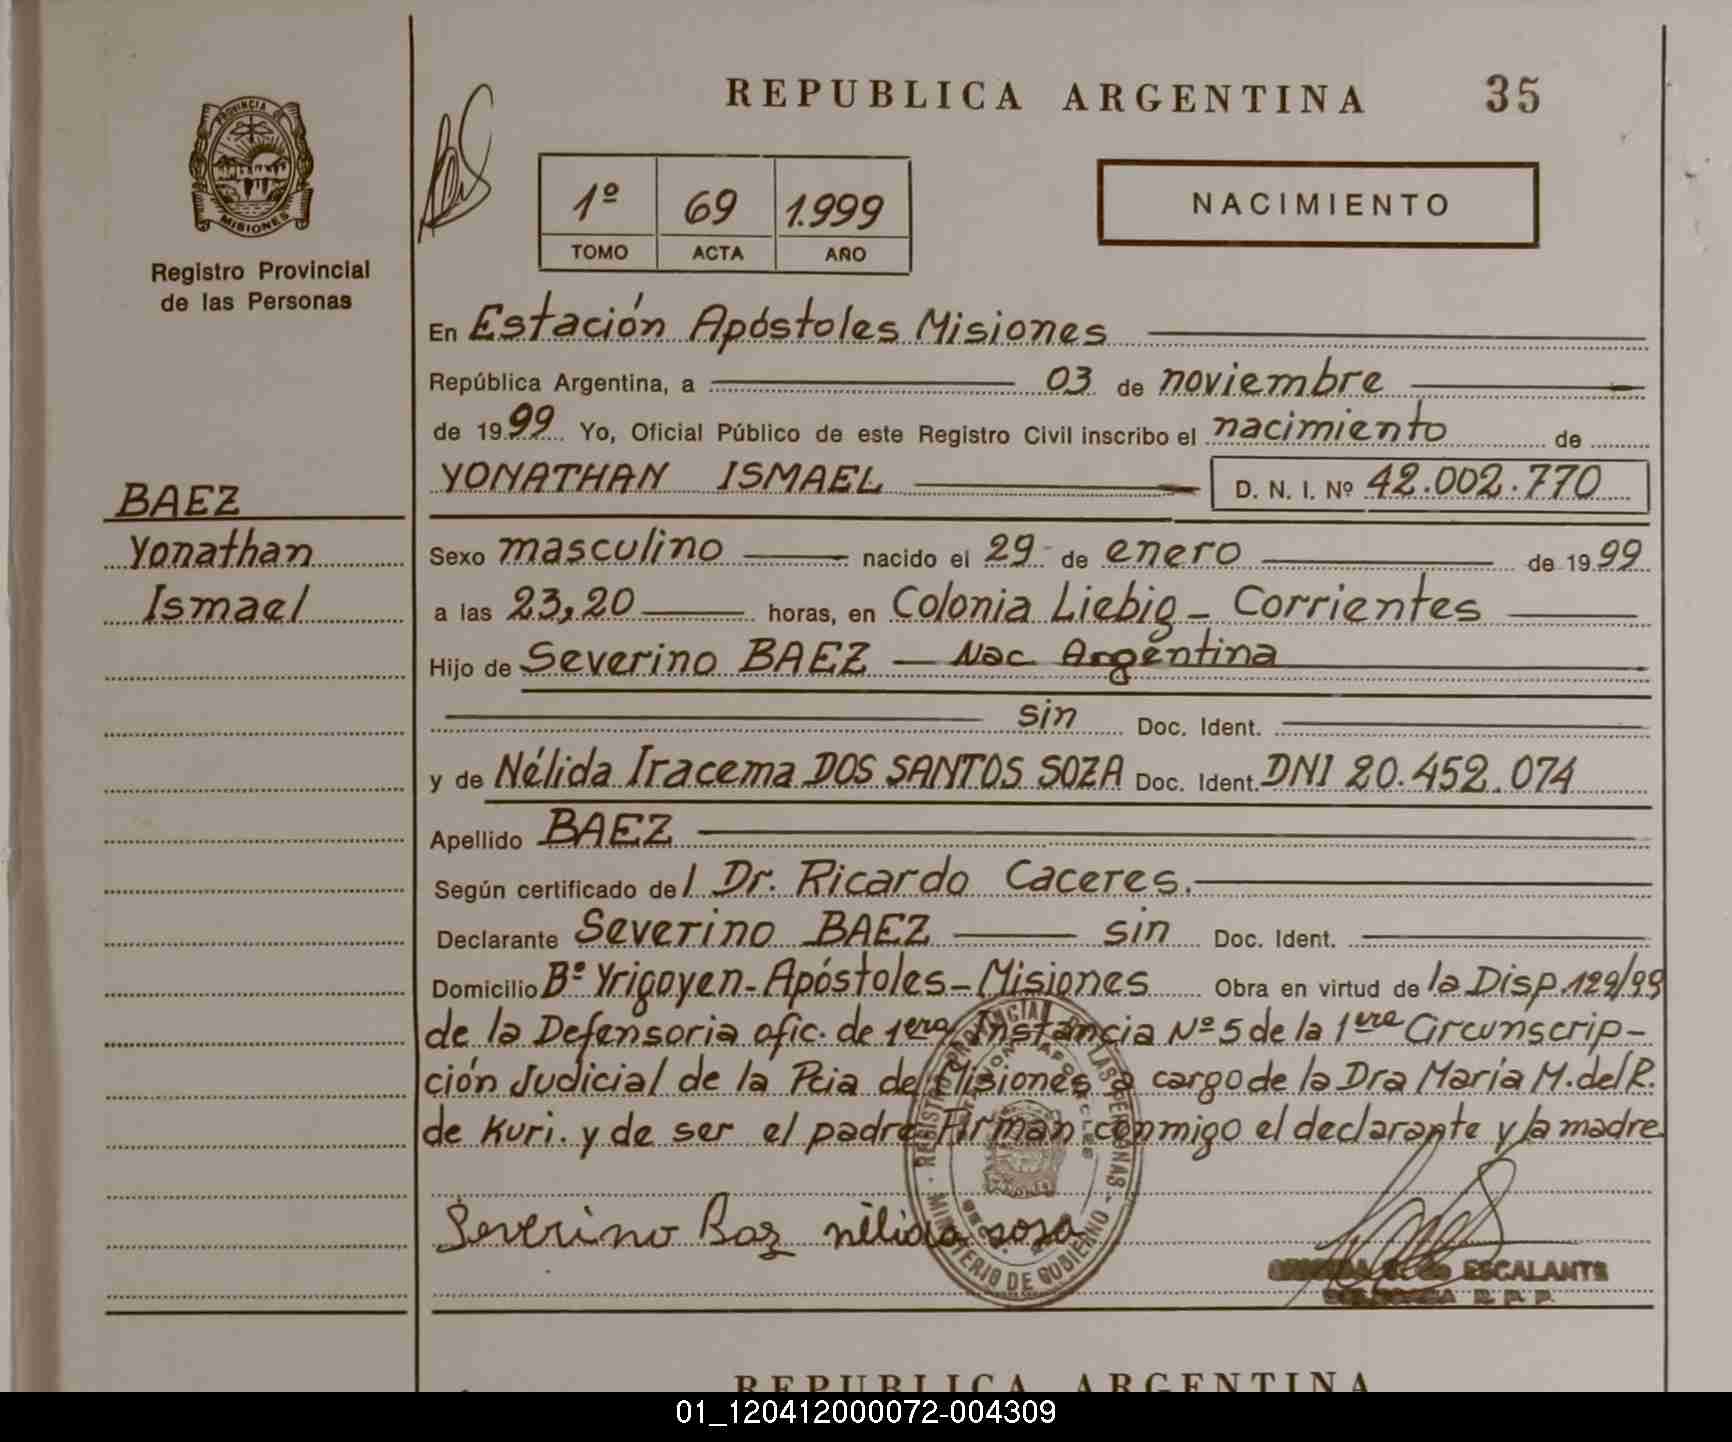 REPUBLICA ARGENTINA 35
PROVINCIA DE
MISIONES
Registro Provincial
de las Personas
1º 69 1.999
TOMO ACTA AÑO
NACIMIENTO
En Estación Apóstoles Misiones
República Argentina, a 03 de noviembre
de 1999 Yo, Oficial Público de este Registro Civil inscribo el nacimiento de
YONATHAN ISMAEL D. N. I. Nº 42.002.770
BAEZ
Yonathan
Ismael
Sexo masculino nacido el 29 de enero de 1999
a las 23,20 horas, en Colonia Liebig - Corrientes
Hijo de Severino BAEZ — Nac Argentina
sin Doc. Ident.
y de Nélida Iracema DOS SANTOS SOZA Doc. Ident. DNI 20.452.074
Apellido BAEZ
Según certificado del Dr. Ricardo Caceres.
Declarante Severino BAEZ sin Doc. Ident.
Domicilio Bº Yrigoyen - Apóstoles - Misiones Obra en virtud de la Disp. 129/99
de la Defensoria ofic. de 1era Instancia Nº 5 de la 1era Circunscrip-
ción Judicial de la Pcia de Misiones a cargo de la Dra María M. del R.
de Kuri. y de ser el padre Firman conmigo el declarante y la madre
Severino Baz nélida sosa
REGISTRO PROVINCIAL DE LAS PERSONAS
MINISTERIO DE GOBIERNO
de ESCALANTE
R. P. P.
REPUBLICA ARGENTINA
01_120412000072-004309